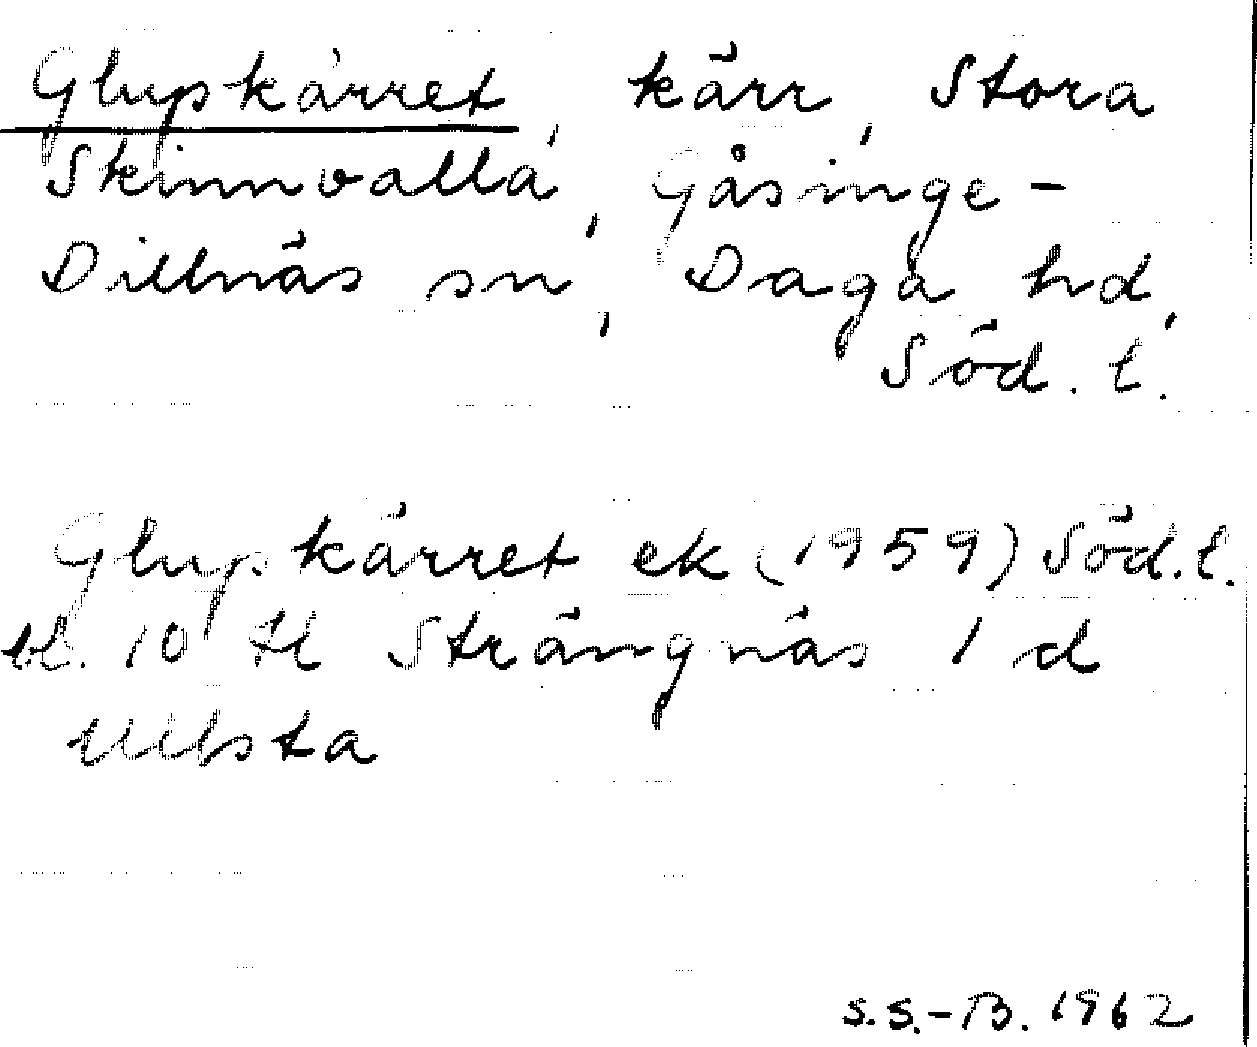 Glupkärret, kärr, Stora
Skinnvalla, Gåsinge-
Dillnäs sn, Daga hd,
Söd. l.
Glupkärret ek (1959) Söd. l.
bl. 10 tl Strängnäs 1 d
Ullsta
S.S.-B. 1962